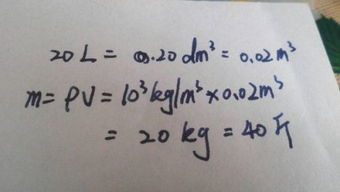 20 L = 20 dm³ = 0.02 m³
m = ρV = 10³ kg/m³ × 0.02 m³
= 20 kg = 40 斤